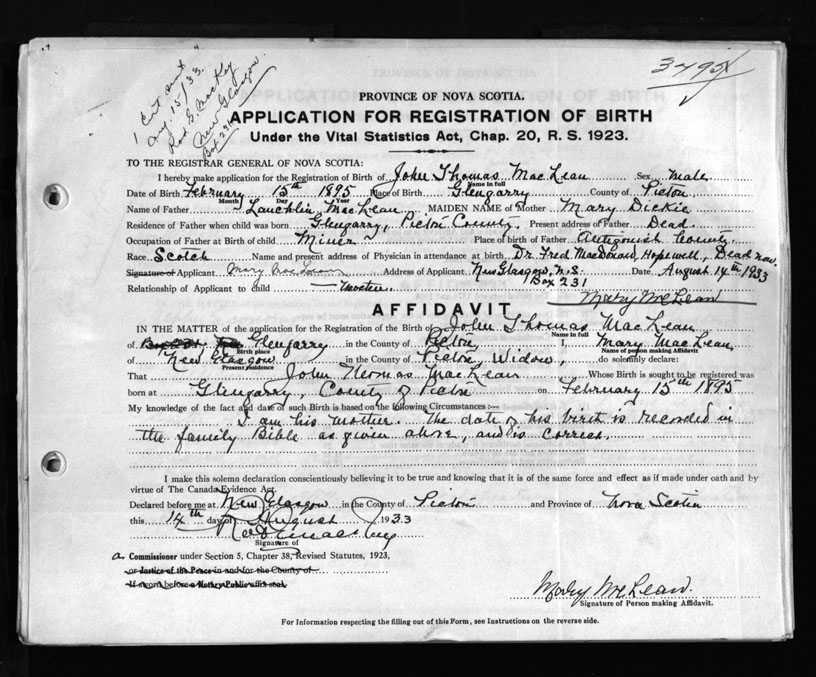 3495
1 Cert sent
Aug 15/33.
New Glasgow
Box 231
PROVINCE OF NOVA SCOTIA.
APPLICATION FOR REGISTRATION OF BIRTH
Under the Vital Statistics Act, Chap. 20, R. S. 1923.
TO THE REGISTRAR GENERAL OF NOVA SCOTIA:
I hereby make application for the Registration of Birth of John Thomas MacLean Sex Male
Name in full
Date of Birth February 15th 1895 Place of Birth Glengarry County of Pictou
Month Day Year
Name of Father Lauchlin MacLean MAIDEN NAME of Mother Mary Dickie
Residence of Father when child was born Glengarry, Pictou County. Present address of Father Dead.
Occupation of Father at Birth of child Miner Place of birth of Father Antigonish County
Race Scotch Name and present address of Physician in attendance at birth Dr. Fred MacDonald, Hopewell, Dead now.
Signature of Applicant Mary MacLean Address of Applicant New Glasgow, N.S. Date August 14th, 1933
Box 231
Relationship of Applicant to child Mother. Mary McLean
AFFIDAVIT
IN THE MATTER of the application for the Registration of the Birth of John Thomas MacLean
Name in full
of Glengarry in the County of Pictou, I, Mary MacLean
Birth place Name of person making Affidavit
of New Glasgow in the County of Pictou, Widow, do solemnly declare:
Present residence
That John Thomas MacLean Whose Birth is sought to be registered was
born at Glengarry, County of Pictou on February 15th 1895
My knowledge of the fact and date of such Birth is based on the following Circumstances :—
I am his mother. The date of his birth is recorded in
the family Bible as given above, and is correct.
I make this solemn declaration conscientiously believing it to be true and knowing that it is of the same force and effect as if made under oath and by
virtue of The Canada Evidence Act.
Declared before me at New Glasgow in the County of Pictou and Province of Nova Scotia
this 14th day of August 1933
Signature of
a Commissioner under Section 5, Chapter 38, Revised Statutes, 1923,
or Justice of the Peace in and for the County of
If sworn before a Notary Public affix seal.
Mary McLean.
Signature of Person making Affidavit.
For Information respecting the filling out of this Form, see Instructions on the reverse side.